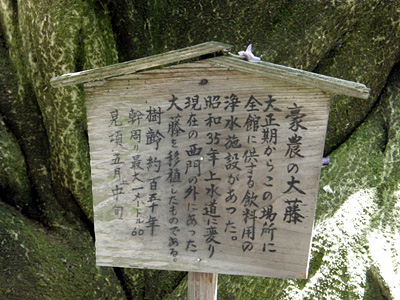 豪農の大藤
大正期からこの場所に
全館に供する飲料用の
浄水施設があった。
昭和35年上水道に変り
現在の西門の外にあった
大藤を移植したものである。
樹齢 約百五十年
幹周り最大一米トル60
見頃 五月中旬